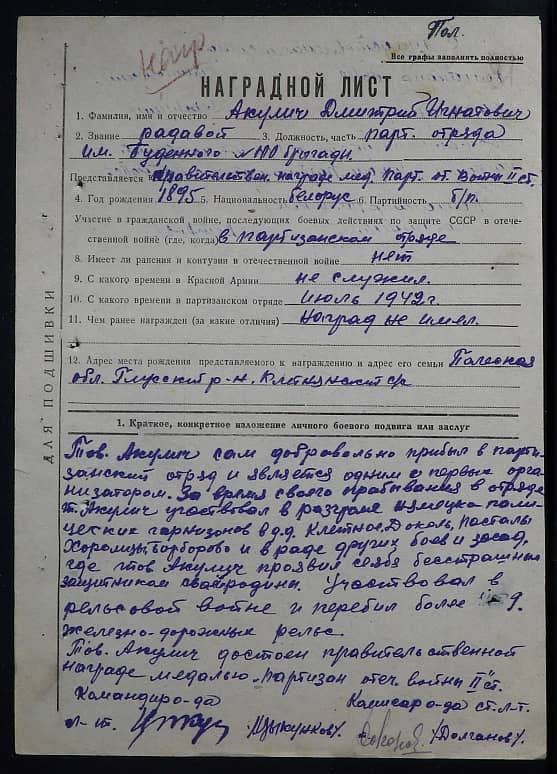 Пол.
нагр
Все графы заполнить полностью
НАГРАДНОЙ ЛИСТ
1. Фамилия, имя и отчество Акулич Дмитрий Игнатович
2. Звание радавой 3. Должность, часть парт. отряда
им. Буденного №100 бригады.
Представляется к правительствен. награде мед. Парт. от. Войны II ст.
4. Год рождения 1895 5. Национальность белорус 6. Партийность б/п.
Участие в гражданской войне, последующих боевых действиях по защите СССР в отече-
ственной войне (где, когда) в партизанском отряде
8. Имеет ли ранения и контузии в отечественной войне нет
9. С какого времени в Красной Армии не служил.
10. С какого времени в партизанском отряде июль 1942 г.
11. Чем ранее награжден (за какие отличия) наград не имел.
12. Адрес места рождения представляемого к награждению и адрес его семьи Полесная
обл. Глусский р-н. Клетнянский с/с
ДЛЯ ПОДШИВКИ
1. Краткое, конкретное изложение личного боевого подвига или заслуг
Тов. Акулич сам добровольно прибыл в парти-
занский отряд и является одним с первых орга-
низатором. За время своего прабывания в отряде
т. Акулич участвовал в разгроме немецка поли-
цейских гарнизонов в д.д. Клетное, Доколь,
Хоромцы, Борборово и в раде других боев и засад,
где тов Акулич проявил себя бесстрашным
защитником свайродины. Участвовал в
рельсовой войне и перебил более 9.
железно-дорожных рельс.
Тов. Акулич достоен правительственной
награде медалью "Партизан отеч войны II" ст.
Командир о-да Комисар о-да ст. л-т.
л-т. /Цыкунков/. /Долганов/.